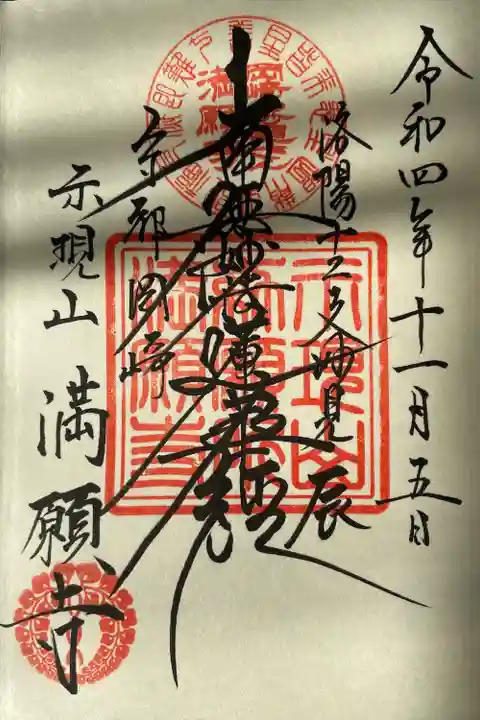 令和四年十一月五日
洛陽十二支妙見 辰
南無妙法蓮華経
京都岡崎
示現山 満願寺